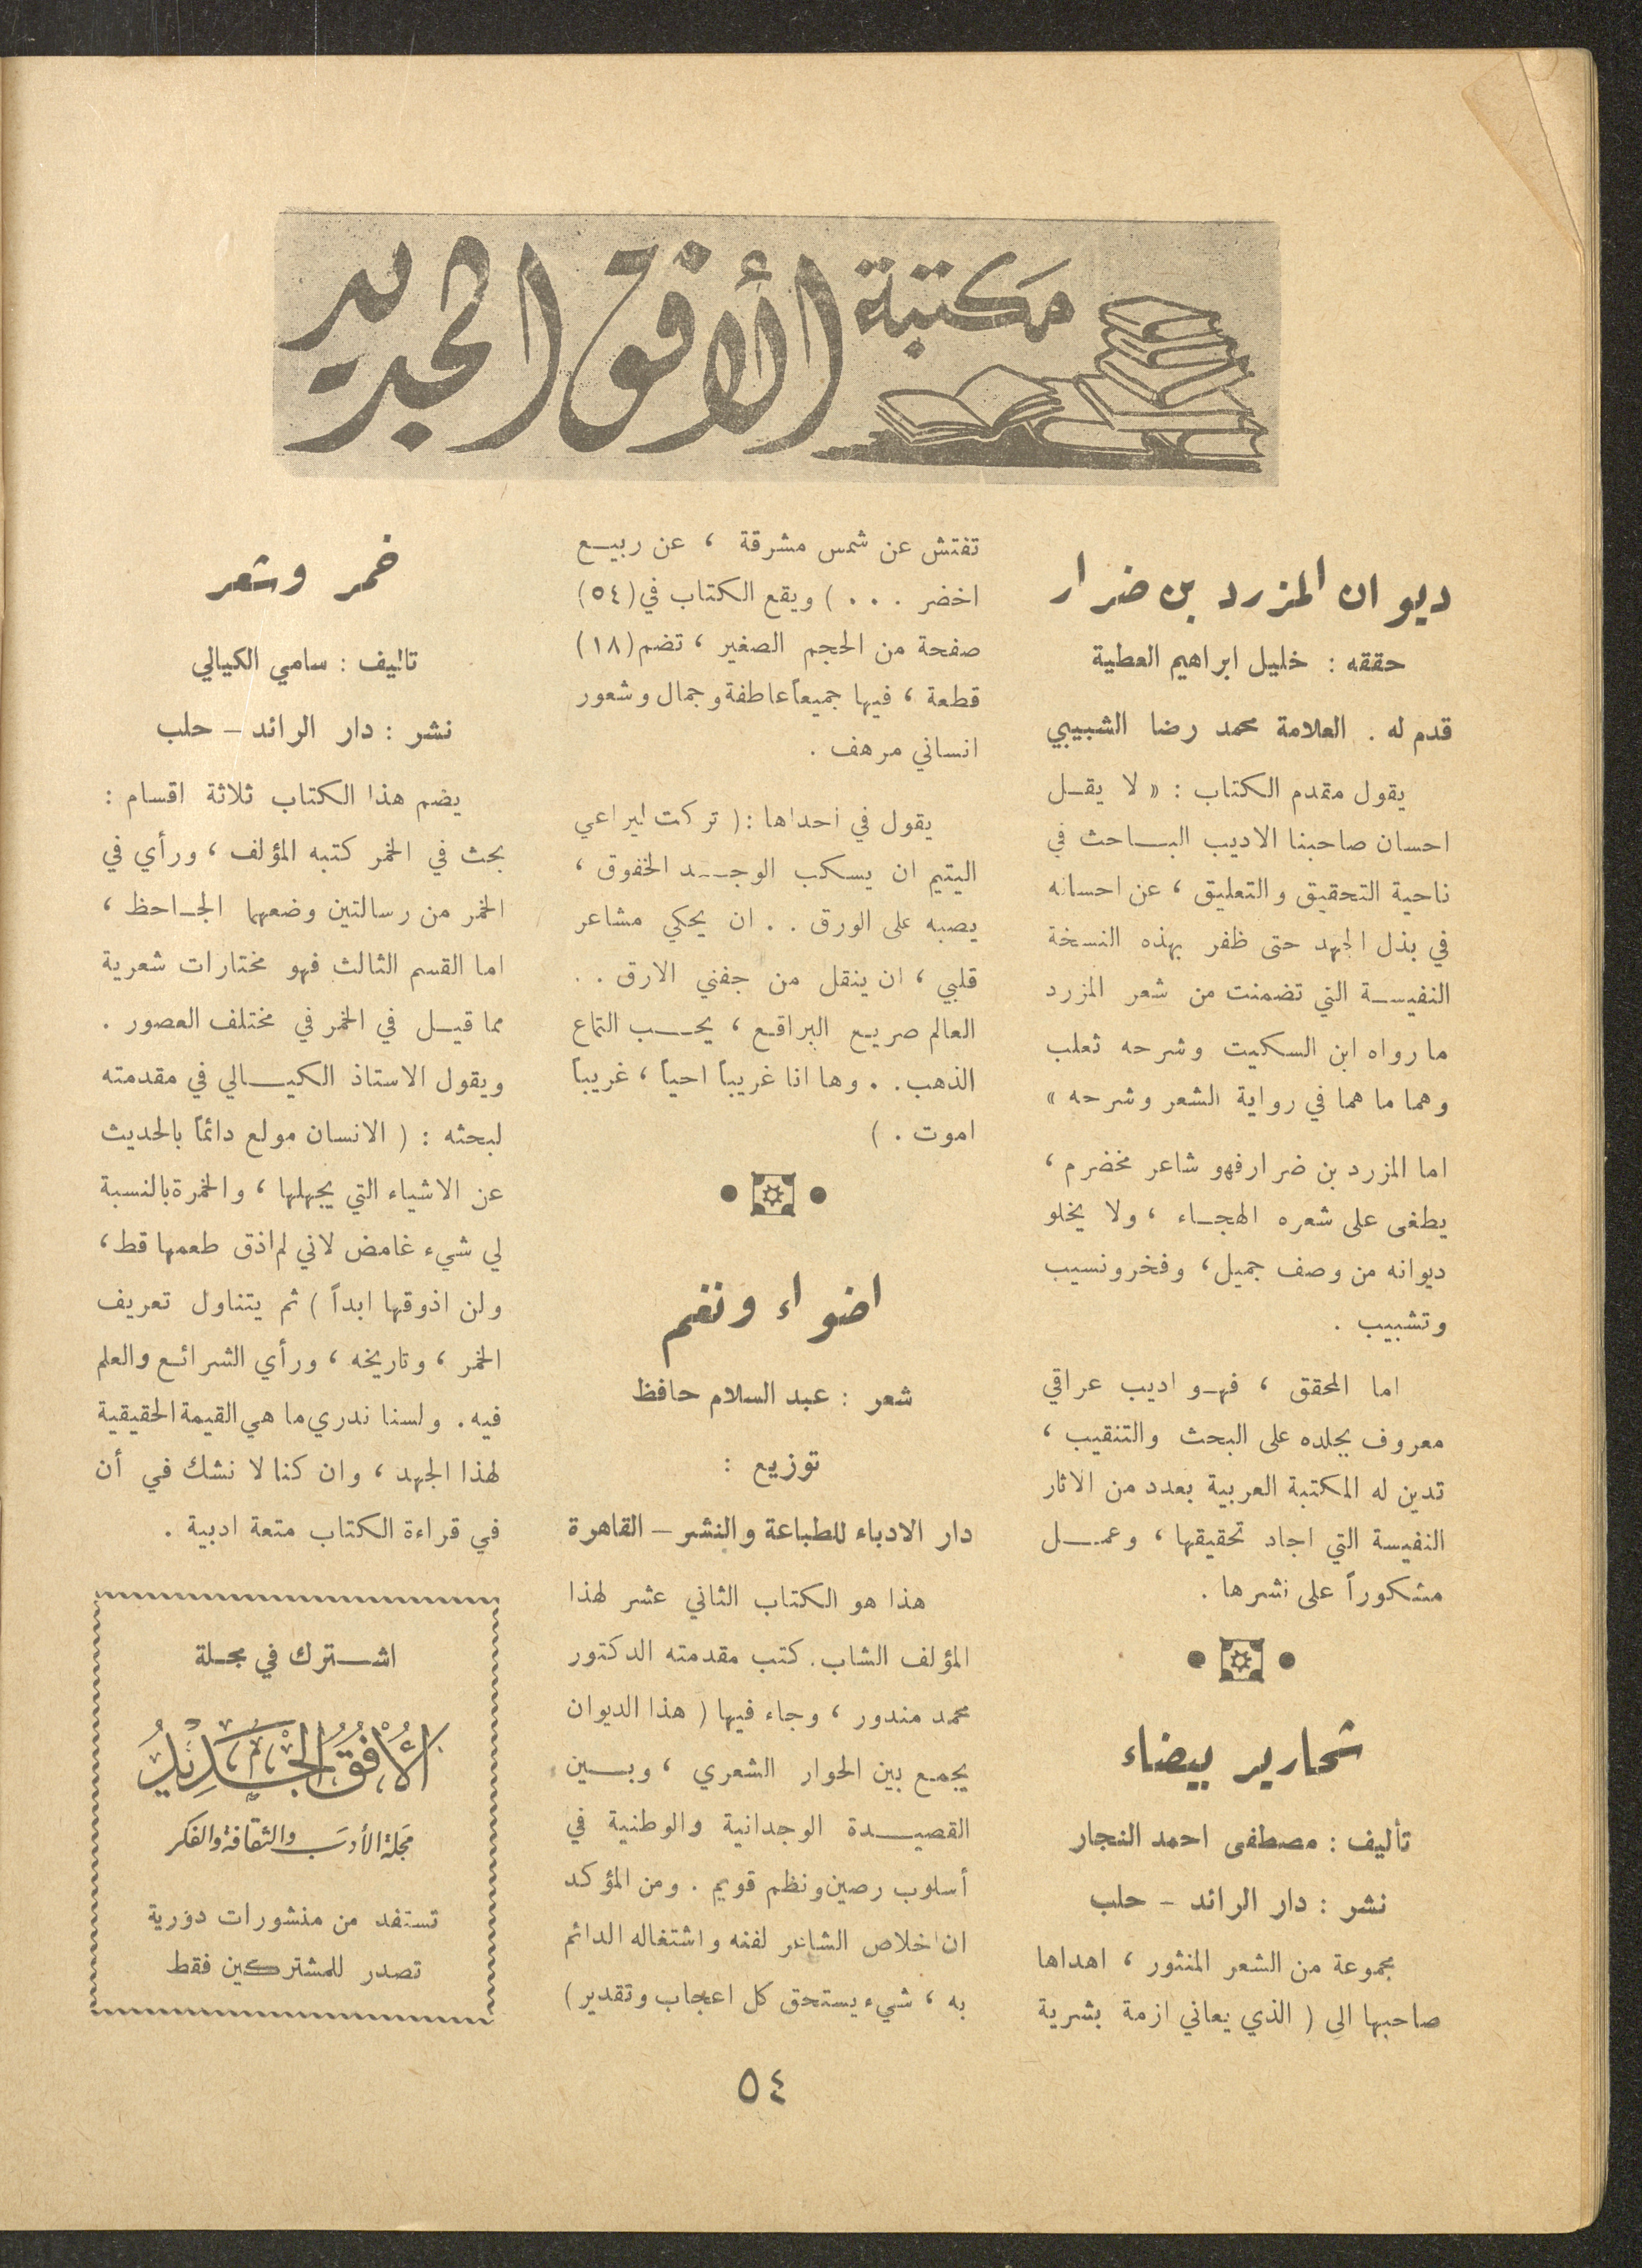 مكتبة الأفق الجديد
ديوان المزرد بن ضرار
حققه : خليل ابراهيم العطية
قدم له . العلامة محمد رضا الشبيبي
يقول مقدم الكتاب : « لا يقـل
احسان صاحبنا الاديب البـاحث في
ناحية التحقيق والتعليق ، عن احسانه
في بذل الجهد حتى ظفر بهذه النسخة
النفيسـة التي تضمنت من شعر المزرد
ما رواه ابن السكيت وشرحه ثعلب
وهما ما هما في رواية الشعر وشرحه »
اما المزرد بن ضرار فهو شاعر مخضرم ،
يطغى على شعره الهجـاء ، ولا يخلو
ديوانه من وصف جميل ، وفخر ونسيب
وتشبيب .
اما المحقق ، فهـو اديب عراقي
معروف بجلده على البحث والتنقيب ،
تدين له المكتبة العربية بعدد من الاثار
النفيسة التي اجاد تحقيقها ، وعمـل
مشكوراً على نشرها .
شحارير بيضاء
تأليف : مصطفى احمد النجار
نشر : دار الرائد – حلب
مجموعة من الشعر المنثور ، اهداها
صاحبها الى ( الذي يعاني ازمة بشرية
تفتش عن شمس مشرقة ، عن ربيـع
اخضر . . . ) ويقع الكتاب في (٥٤)
صفحة من الحجم الصغير ، تضم (١٨)
قطعة ، فيها جميعاً عاطفة وجمال وشعور
انساني مرهف .
يقول في احداها : ( تركت ليراعي
اليتيم ان يسكب الوجـد الخفوق ،
يصبه على الورق . . ان يحكي مشاعر
قلبي ، ان ينقل من جفني الارق . .
العالم صريع البراقع ، يحـب التماع
الذهب . . وها انا غريباً احياً ، غريباً
اموت . )
اضواء ونغم
شعر : عبد السلام حافظ
توزيع :
دار الادباء للطباعة والنشر – القاهرة
هذا هو الكتاب الثاني عشر لهذا
المؤلف الشاب . كتب مقدمته الدكتور
محمد مندور ، وجاء فيها ( هذا الديوان
يجمع بين الحوار الشعري ، وبـين
القصيـدة الوجدانية والوطنية في
أسلوب رصين ونظم قويم . ومن المؤكد
ان اخلاص الشاعر لفنه واشتغاله الدائم
به ، شيء يستحق كل اعجاب وتقدير )
خمر وشعر
تاليف : سامي الكيالي
نشر : دار الرائد – حلب
يضم هذا الكتاب ثلاثة اقسام :
بحث في الخمر كتبه المؤلف ، ورأي في
الخمر من رسالتين وضعهما الجـاحظ ،
اما القسم الثالث فهو مختارات شعرية
مما قيـل في الخمر في مختلف العصور .
ويقول الاستاذ الكيـالي في مقدمته
لبحثه : ( الانسان مولع دائماً بالحديث
عن الاشياء التي يجهلها ، والخمرة بالنسبة
لي شيء غامض لاني لم اذق طعمها قط ،
ولن اذوقها ابداً ) ثم يتناول تعريف
الخمر ، وتاريخه ، ورأي الشرائـع والعلم
فيه . ولسنا ندري ما هي القيمة الحقيقية
لهذا الجهد ، وان كنا لا نشك في أن
في قراءة الكتاب متعة ادبية .
اشـترك في مجـلة
الأُفُقُ الجَديدُ
مجَلة الأدبَ والثقافة والفكر
تستفد من منشورات دورية
تصدر للمشتركين فقط
٥٤